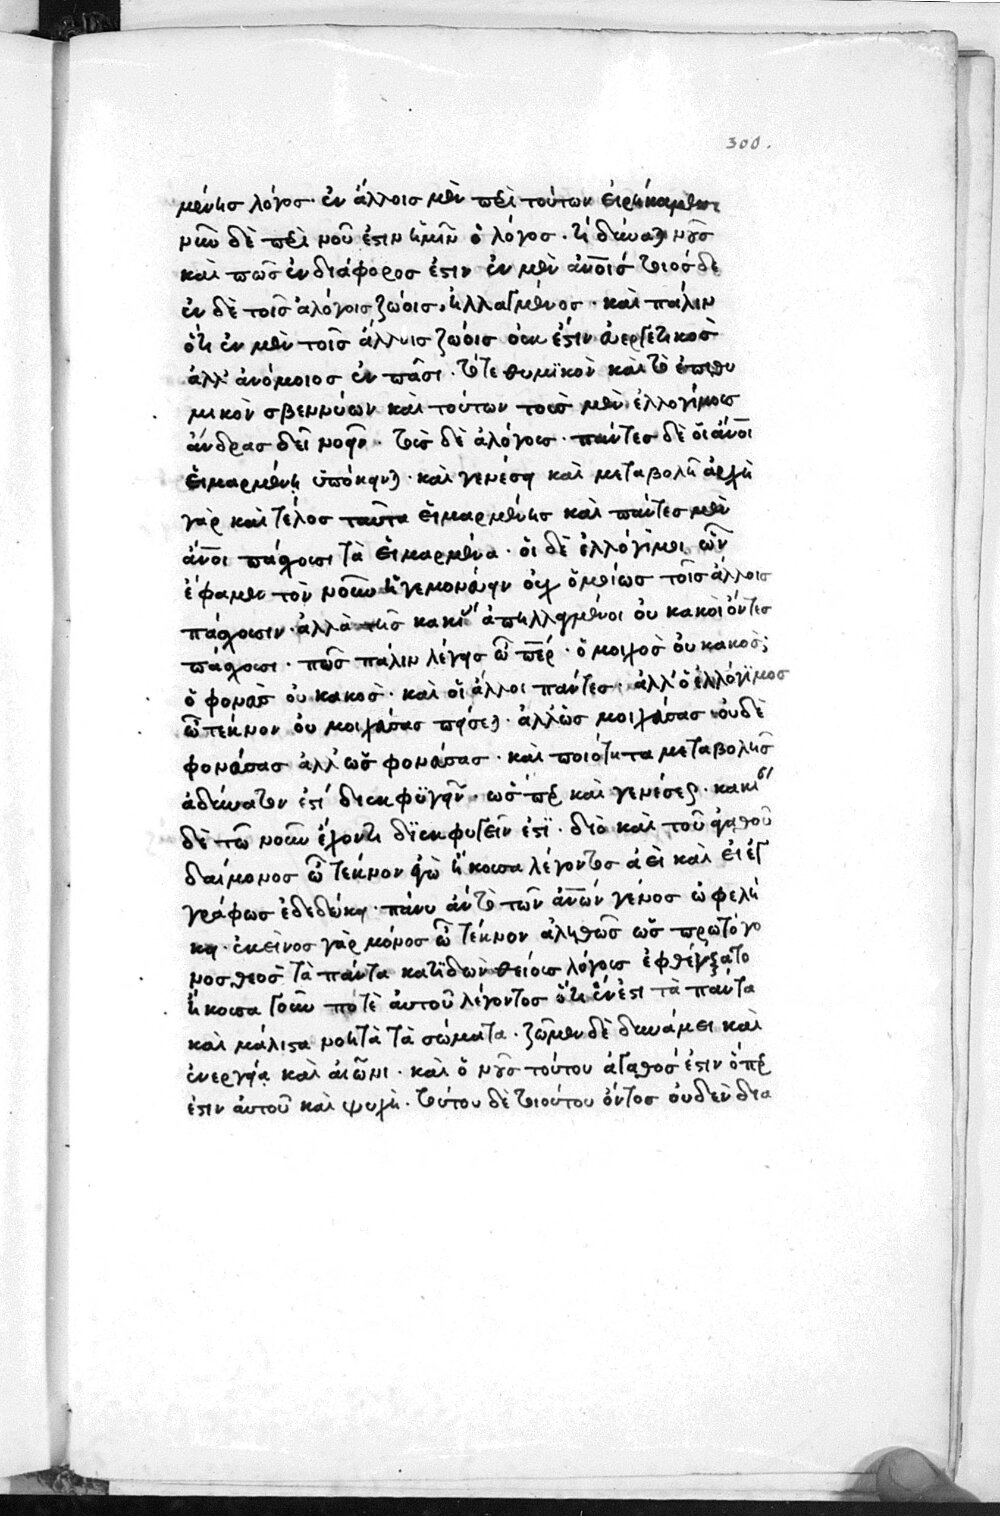 300.
μένης λόγος· ἐν ἄλλοις μὲν περὶ τούτων εἰρήκαμεν·
νῦν δὲ περὶ νοῦ ἐστιν ἡμῖν ὁ λόγος· τί δύναται νοῦς
καὶ πῶς ἐνδιάφορός ἐστιν ἐν μὲν ἀνοις τοιόσδε
ἐν δὲ τοῖς ἀλόγοις ζώοις, ἠλλαγμένος· καὶ πάλιν
ὅτι ἐν μὲν τοῖς ἄλλοις ζώοις οὐκ ἔστιν εὐεργετικὸς
ἀλλ' ἀνόμοιος ἐν πᾶσι· τό τε θυμϊκὸν καὶ τὸ ἐπιθυ
μικὸν σβεννύων καὶ τούτων τοὺς μὲν ἐλλογίμους
ἄνδρας δεῖ νοεῖν· τοὺς δὲ ἀλόγους· πάντες δὲ οἱ ἄνοι
εἱμαρμένη ὑπόκεινται· καὶ γενέσει καὶ μεταβολῆ ἀρχὴ
γὰρ καὶ τέλος ταῦτα εἱμαρμένης καὶ πάντες μὲν
ἄνοι πάσχουσι τὰ εἱμαρμένα· οἱ δὲ ἐλλόγιμοι ὧν
ἔφαμεν τὸν νοῦν ἡγεμονεύειν οὐχ ὁμοίως τοῖς ἄλλοις
πάσχουσιν· ἀλλὰ τῆς κακίας ἀπηλλαγμένοι οὐ κακοὶ ὄντες
πάσχουσι· πῶς πάλιν λέγεις ὦ πέρ· ὁ μοιχὸς οὐ κακός;
ὁ φονεὺς οὐ κακὸς· καὶ οἱ ἄλλοι πάντες· ἀλλ' ὁ ἐλλόγϊμος
ὦ τέκνον οὐ μοιχεύσας πείσεται· ἀλλ' ὡς μοιχεύσας οὐδὲ
φονεύσας ἀλλ' ὡς φονεύσας· καὶ ποιότητα μεταβολῆς
ἀδύνατόν ἐστι διεκφϋγεῖν· ὥσπερ καὶ γενέσεως· κακίαν
δὲ τῶ νοῦν ἔχοντι δϊεκφυγεῖν ἐστϊ· διὸ καὶ τοῦ ἀγαθοῦ
δαίμονος ὦ τέκνον ἐγὼ ἤκουσα λέγοντος ἀεὶ καὶ εἰ ἐγ
γράφως ἐδεδώκει· πάνυ ἂν τὸ τῶν ἀνων γένος ὠφελή
κει· ἐκεῖνος γὰρ μόνος ὦ τέκνον ἀληθῶς ὡς πρωτόγο
νος θεὸς τὰ πάντα κατϊδὼν θείους λόγους ἐφθέγξατο
ἤκουσα γοῦν ποτὲ αὐτοῦ λέγοντος ὅτι ἕν ἐστι τὰ πάντα
καὶ μάλιστα νοητὰ τὰ σώματα· ζῶμεν δὲ δυνάμει καὶ
ἐνεργεία καὶ αἰῶνι· καὶ ὁ νοῦς τούτου ἀγαθός ἐστιν ὅπερ
ἐστιν αὐτοῦ καὶ ψυχὴ· τούτου δὲ τοιούτου ὄντος οὐδὲν δια